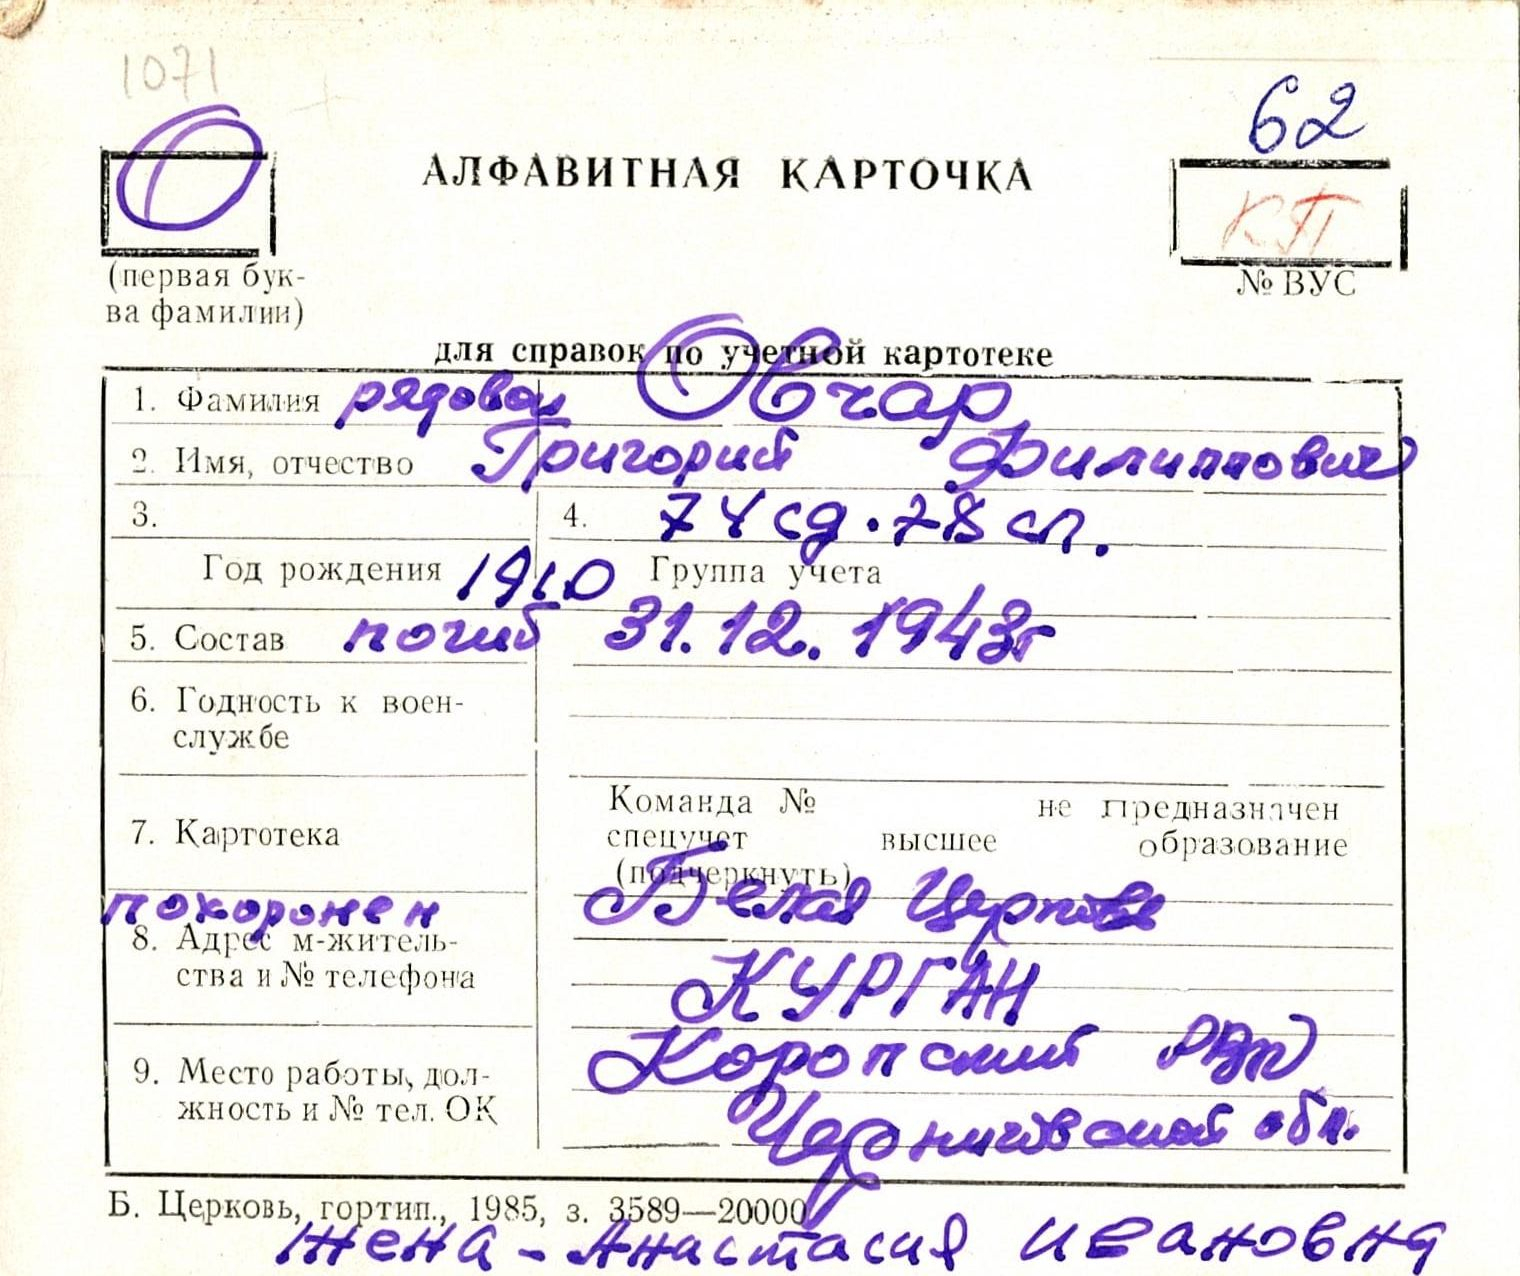 1071
62
О
АЛФАВИТНАЯ КАРТОЧКА
КП
(первая бук-
ва фамилии)
№ ВУС
для справок по учетной картотеке
1. Фамилия рядовой Овчар
2. Имя, отчество Григорий Филиппович
3. 4. 74 сд. 78 сп.
Год рождения 1910 Группа учета
5. Состав погиб 31.12.1943г
6. Годность к воен-
службе
Команда № не предназначен
7. Картотека спецучет высшее образование
(подчеркнуть)
похоронен Белая Церковь
8. Адрес м-житель-
ства и № телефона КУРГАН
Коропский РВК
9. Место работы, дол-
жность и № тел. ОК Черниговской обл.
Б. Церковь, гортип., 1985, з. 3589—20000
жена - Анастасия Ивановна